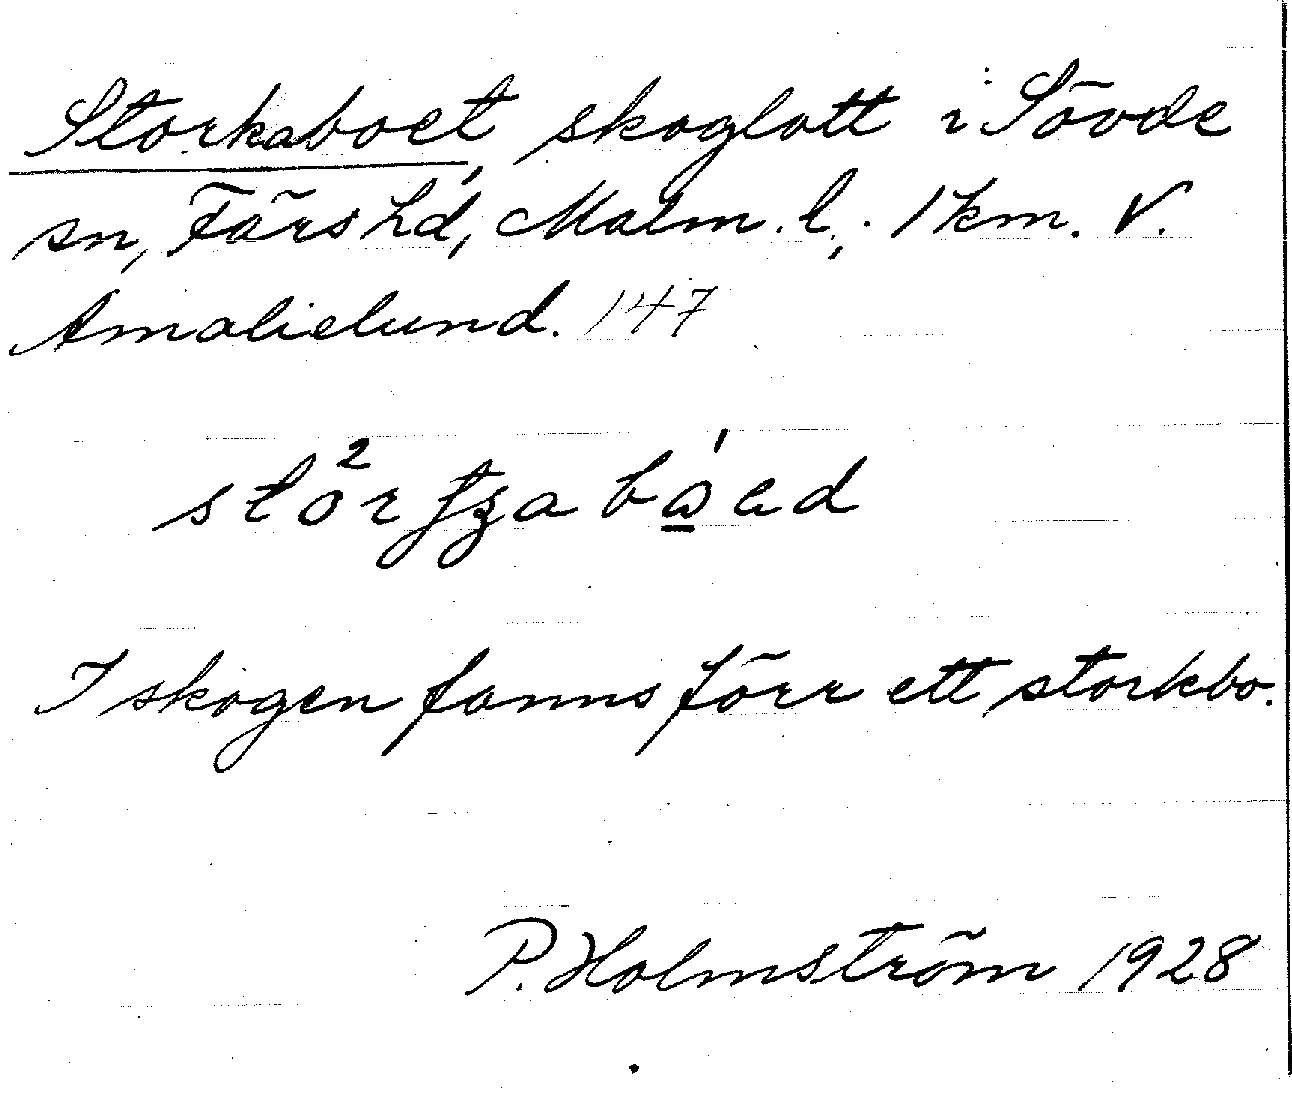 Storkaboet, skoglott i Sövde
sn, Färs hd, Malm. l.; 1 km. V.
Amalielund. 147
I skogen fanns förr ett storkbo.
P. Holmström 1928